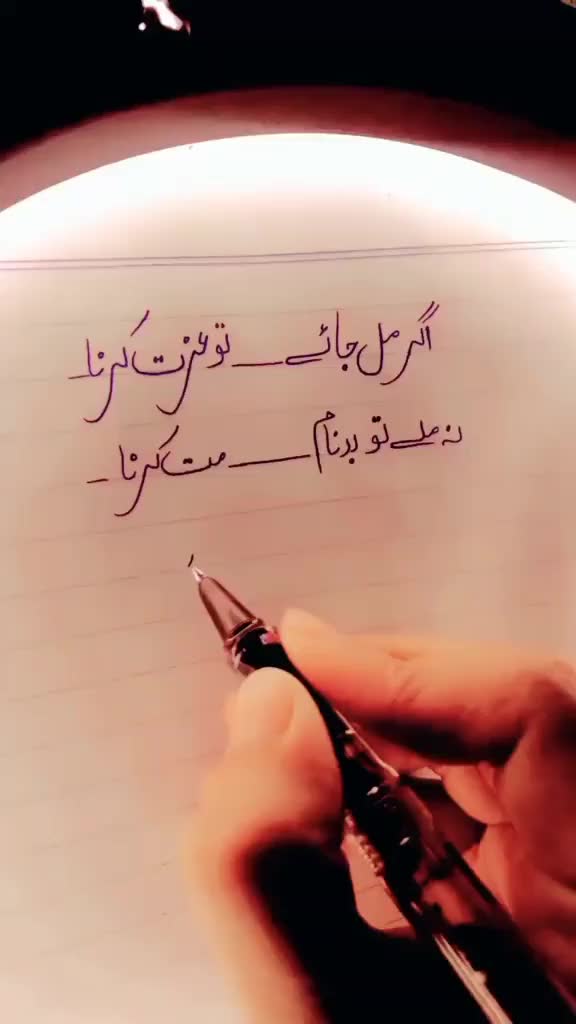 اگر مل جائے ــ تو عزت کرنا۔
نہ ملے تو بدنام ــــ مت کرنا۔